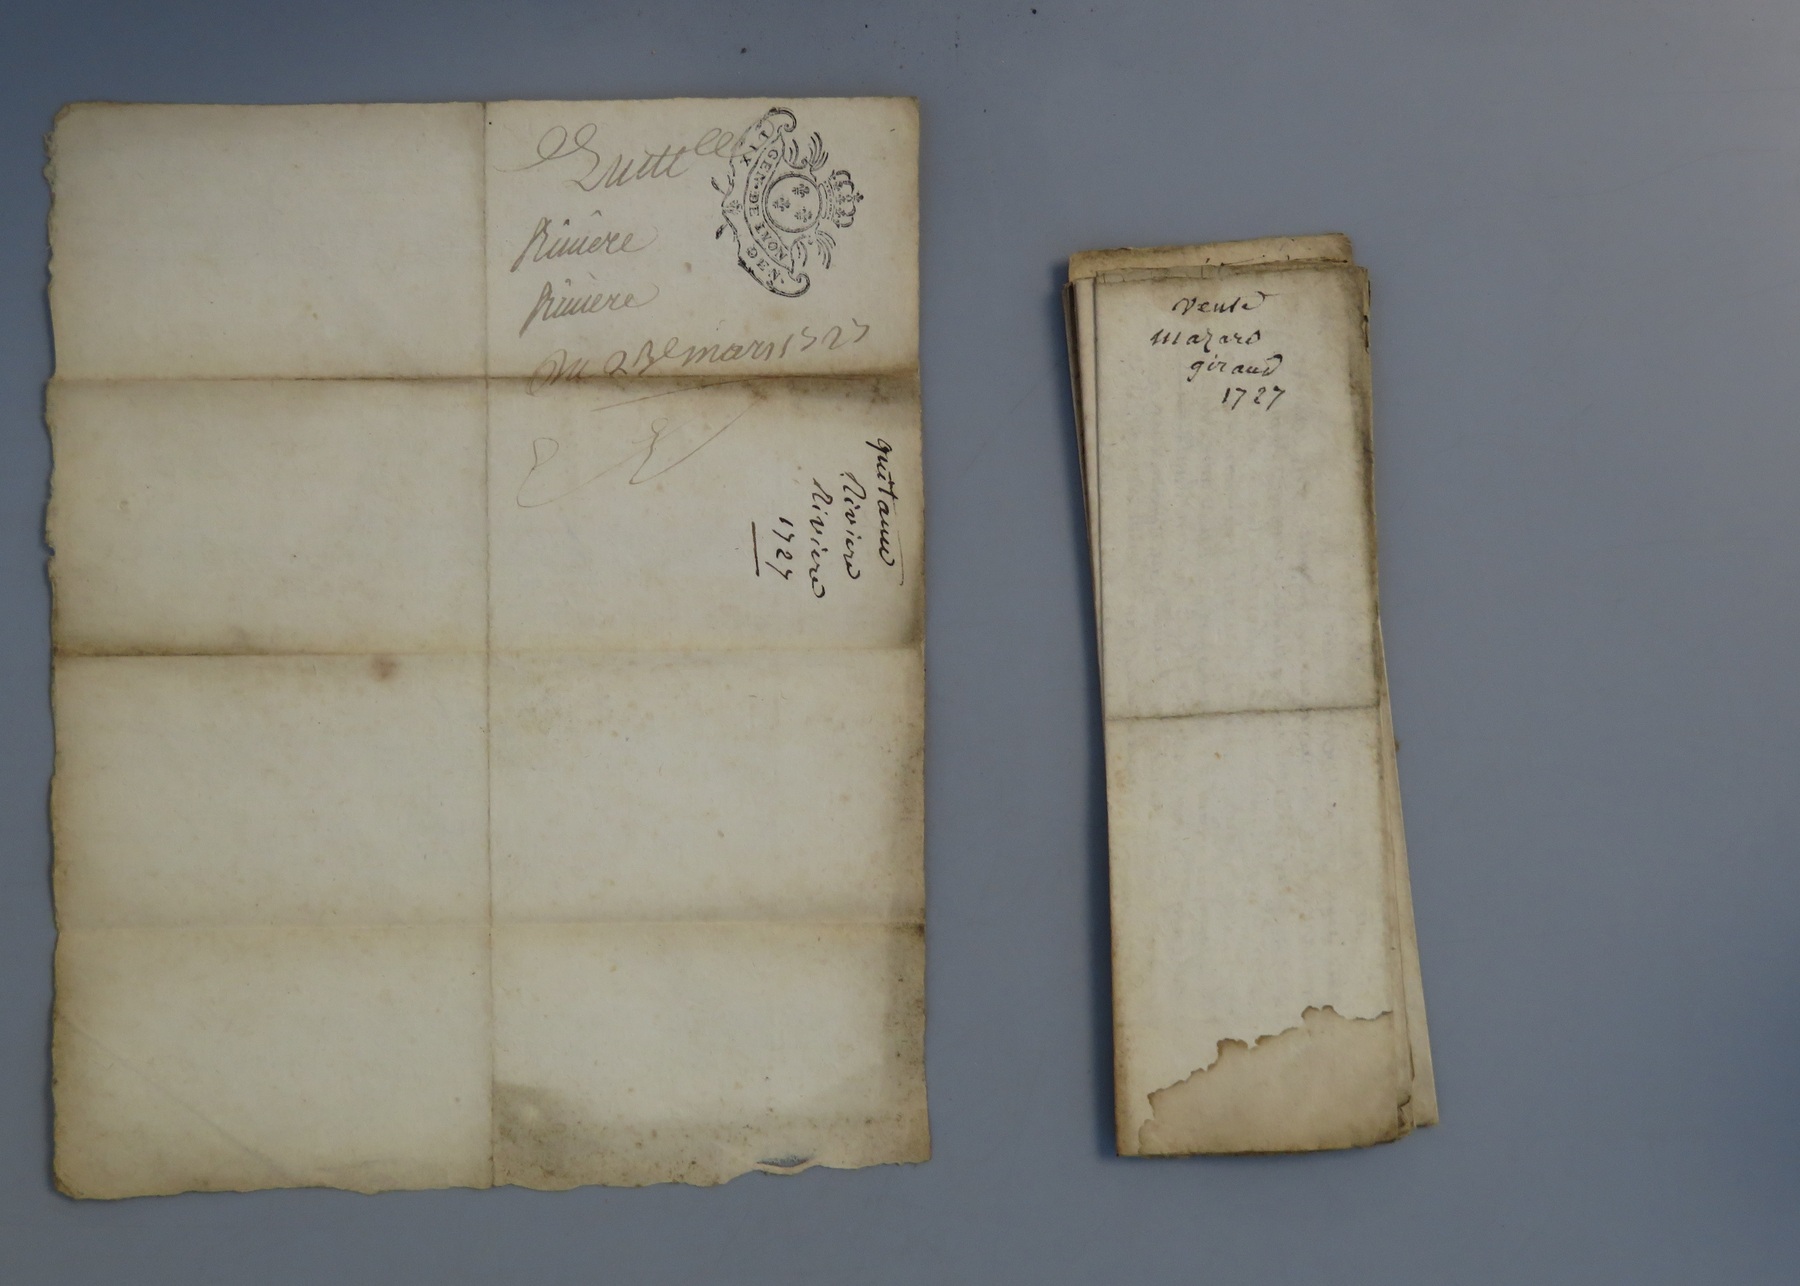 Quitt
Rivière
Rivière
Du 23e mars 1727
GEN·DE
MONT
quitance
Riviere
Riviere
1727
vente
mazard
giraud
1727